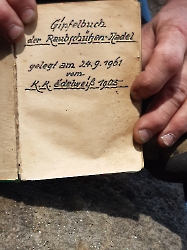 Gipfelbuch
der Raubschützen-Nadel
gelegt am 24.9.1961
vom
K.K. Edelweiß 1905